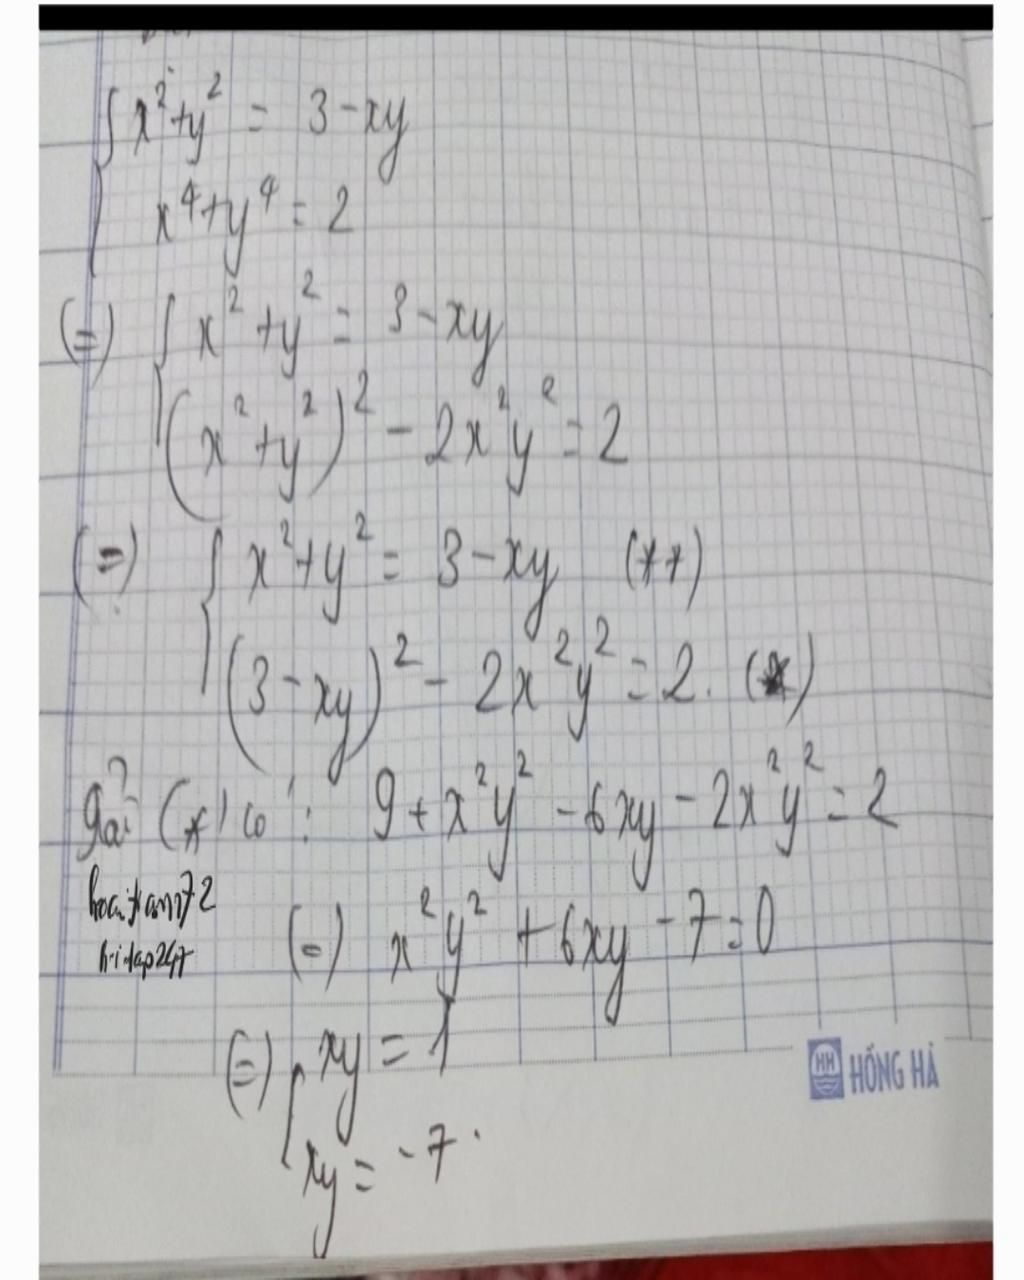 { x² + y² = 3 - xy
x⁴ + y⁴ = 2
(=) { x² + y² = 3 - xy
(x² + y²)² - 2x²y² = 2
(=) { x² + y² = 3 - xy (**)
(3 - xy)² - 2x²y² = 2. (*)
giải (*) có : 9 + x²y² - 6xy - 2x²y² = 2
(=) x²y² + 6xy - 7 = 0
(=) [ xy = 1
xy = -7.
HH HỒNG HÀ